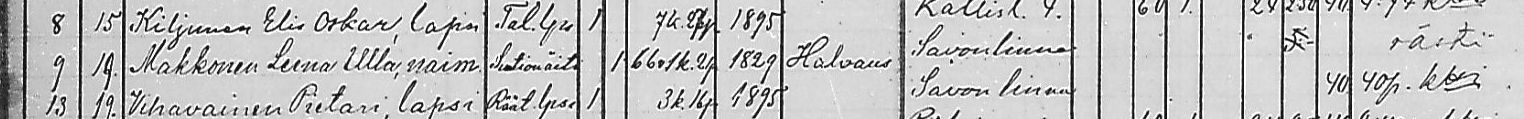 8 15 Kiljunen Elis Oskar, lapsi Tal. lps 1 7k. 1895 Kallisl. 4. 60 1.
9 19. Makkonen Leena Ulla, naim. 1 66v 1k. 2p 1829 Halvaus Savonlinna rästi
13 19. Vihavainen Pietari, lapsi Räät. lpsi 1 3k. 16p 1895 Savonlinna 40 40p.